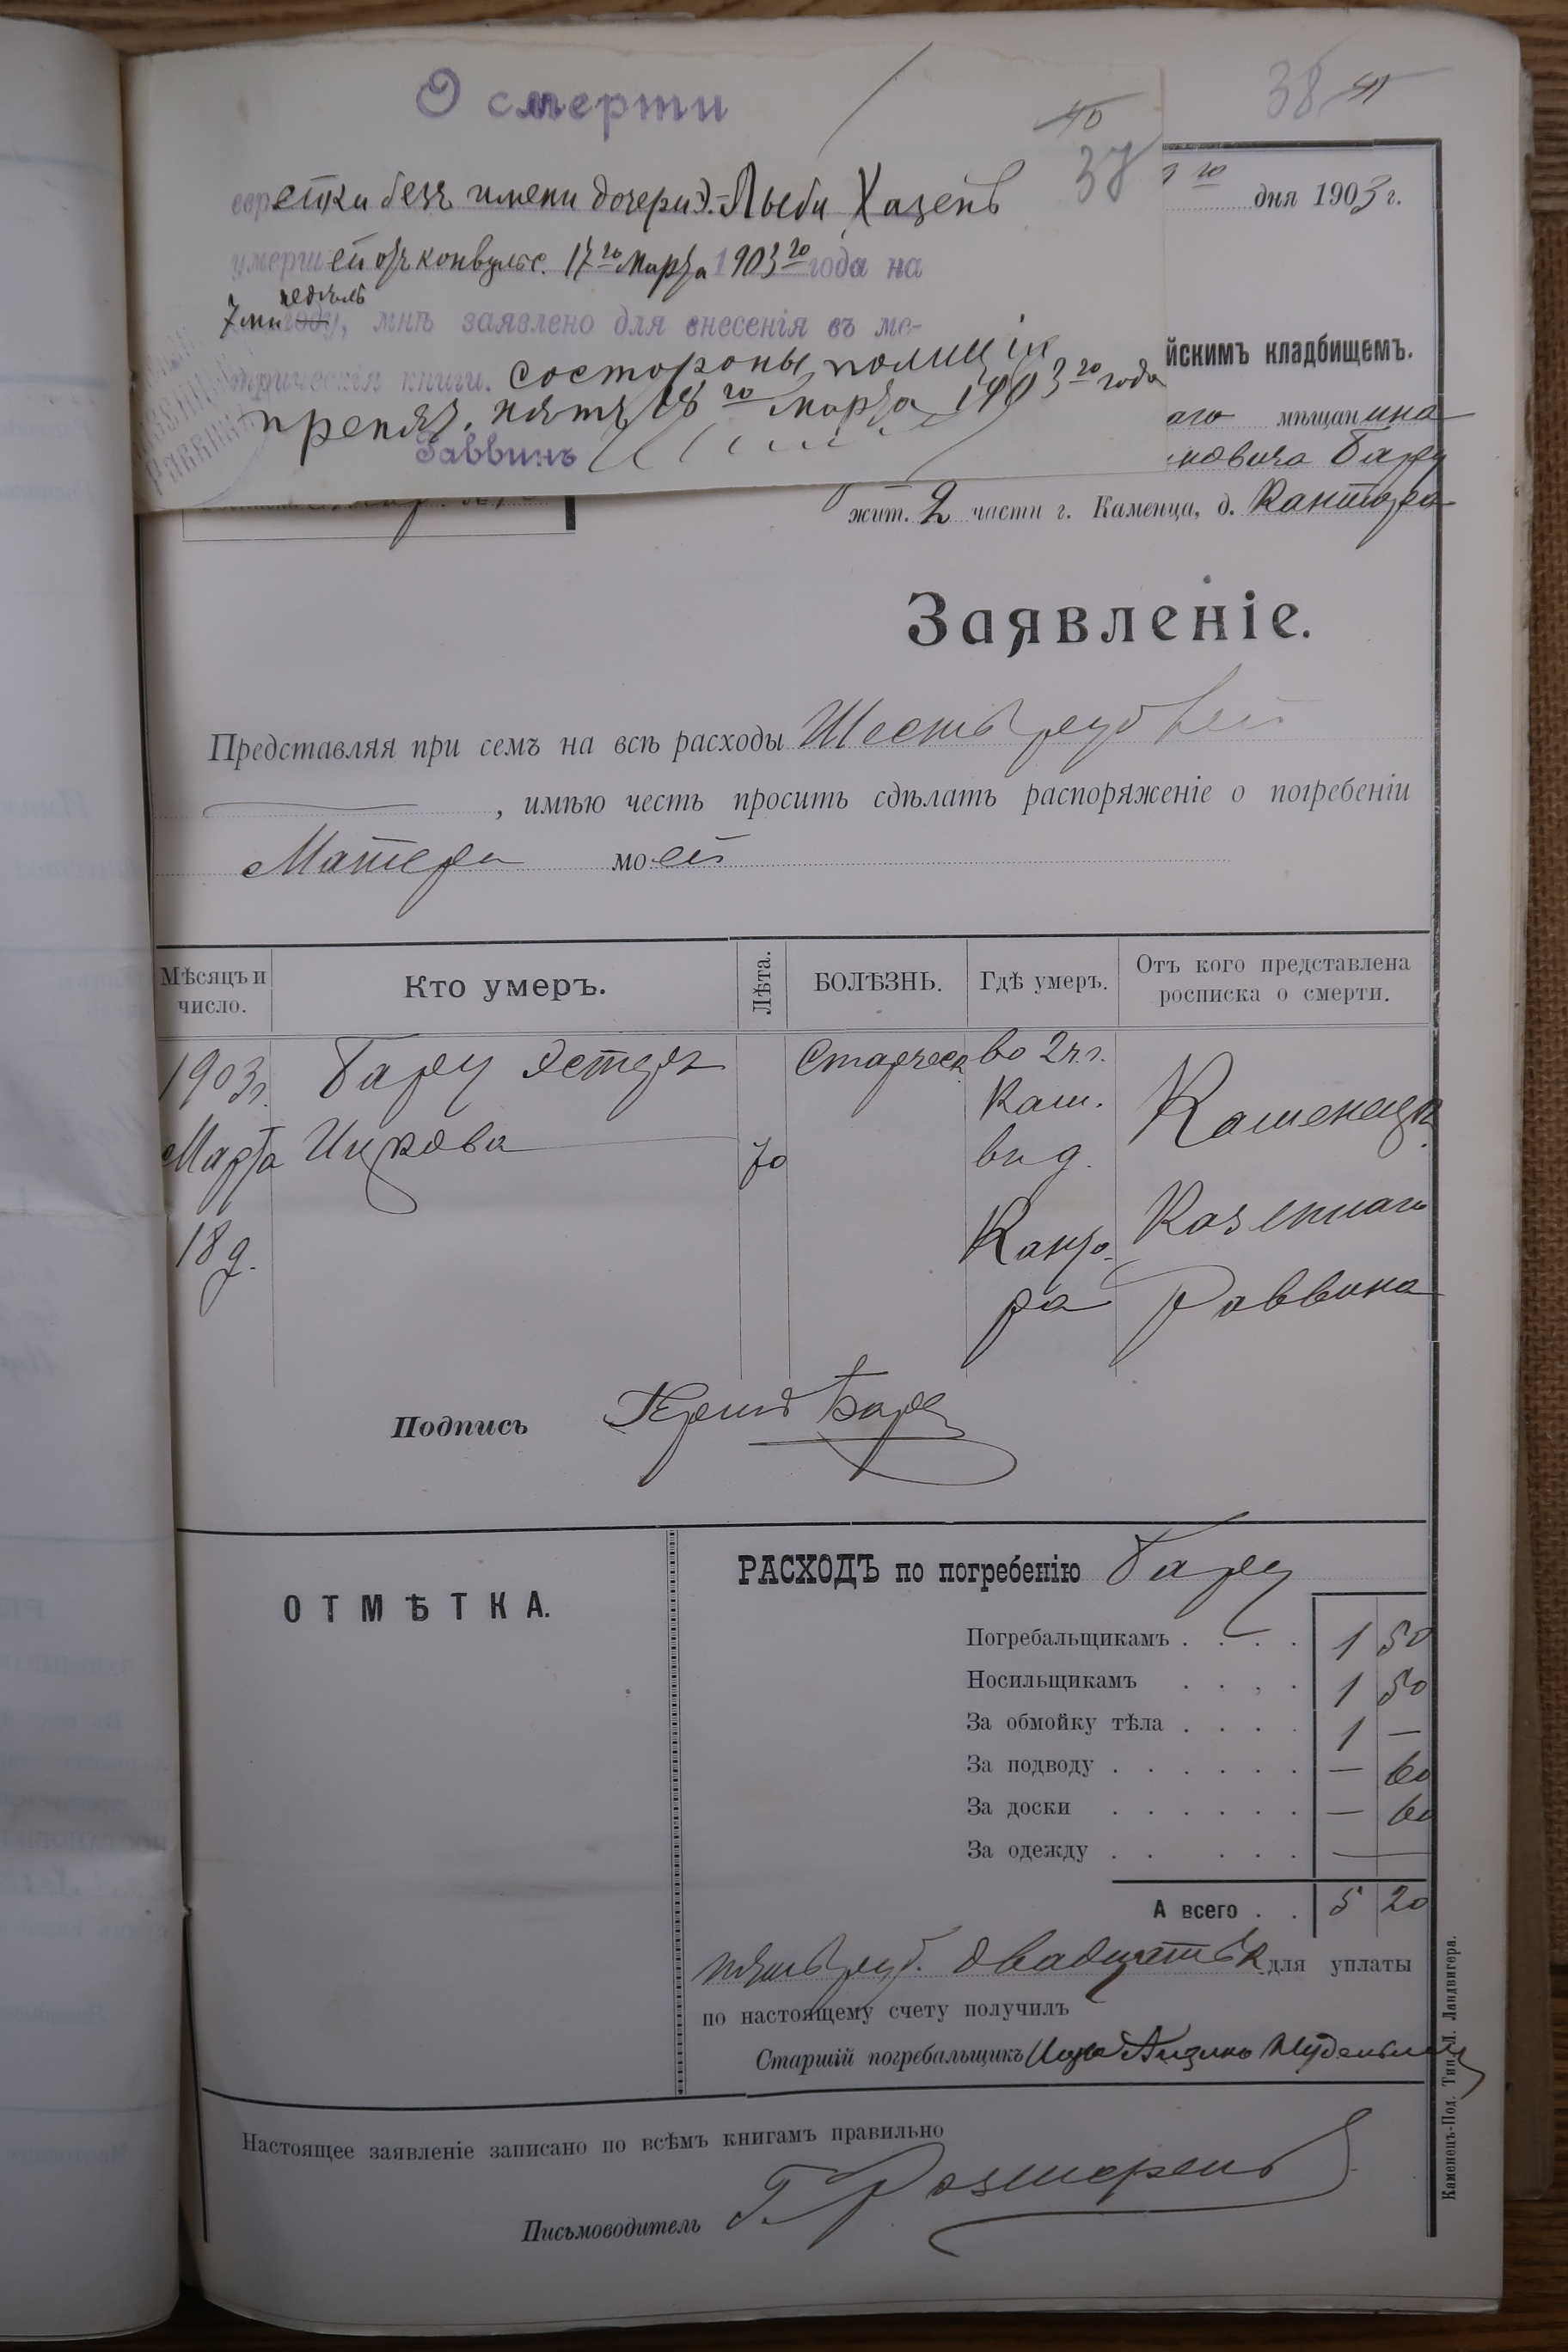 О смерти
40
37
38 41
еврейки безъ имени дочери Э.-Лыби Хазенъ
умершей отъ конвульс. 17го Марта 1903го года на
7ми недѣль году, мнѣ заявлено для внесенія въ ме-
трическія книги. состороны полиціи
препят. нѣтъ 18го Марта 1903го года
Раввинъ
го дня 1903 г.
йскимъ кладбищемъ.
аго мѣщанина
новича Бару
жит. 2 части г. Каменца, д. Кантора
Заявленіе.
Представляя при семъ на всѣ расходы Шесть рублей
, имѣю честь просить сдѣлать распоряженіе о погребеніи
Матери моей
Мѣсяцъ и число.
Кто умеръ.
Лѣта.
БОЛѢЗНЬ.
Гдѣ умеръ.
Отъ кого представлена росписка о смерти.
1903г. Марта 18 д.
Бару Эстеръ Ицкова
70
Старческ.
во 2 ч. г. Кам. въ д. Кантора
Каменецк. Казеннаго Раввина
Подпись Бару
ОТМѢТКА.
РАСХОДЪ по погребенію Бару
Погребальщикамъ . . . . 1 50
Носильщикамъ . . , . 1 50
За обмойку тѣла . . . . 1 —
За подводу . . . . . . — 60
За доски . . . . . . — 60
За одежду . . . . . —
А всего . . 5 20
пять руб. двадцать к для уплаты
по настоящему счету получилъ
Старшій погребальщикъ
Настоящее заявленіе записано по всѣмъ книгамъ правильно
Письмоводитель
Каменецъ-Под. Тип. Л. Ландвигера.